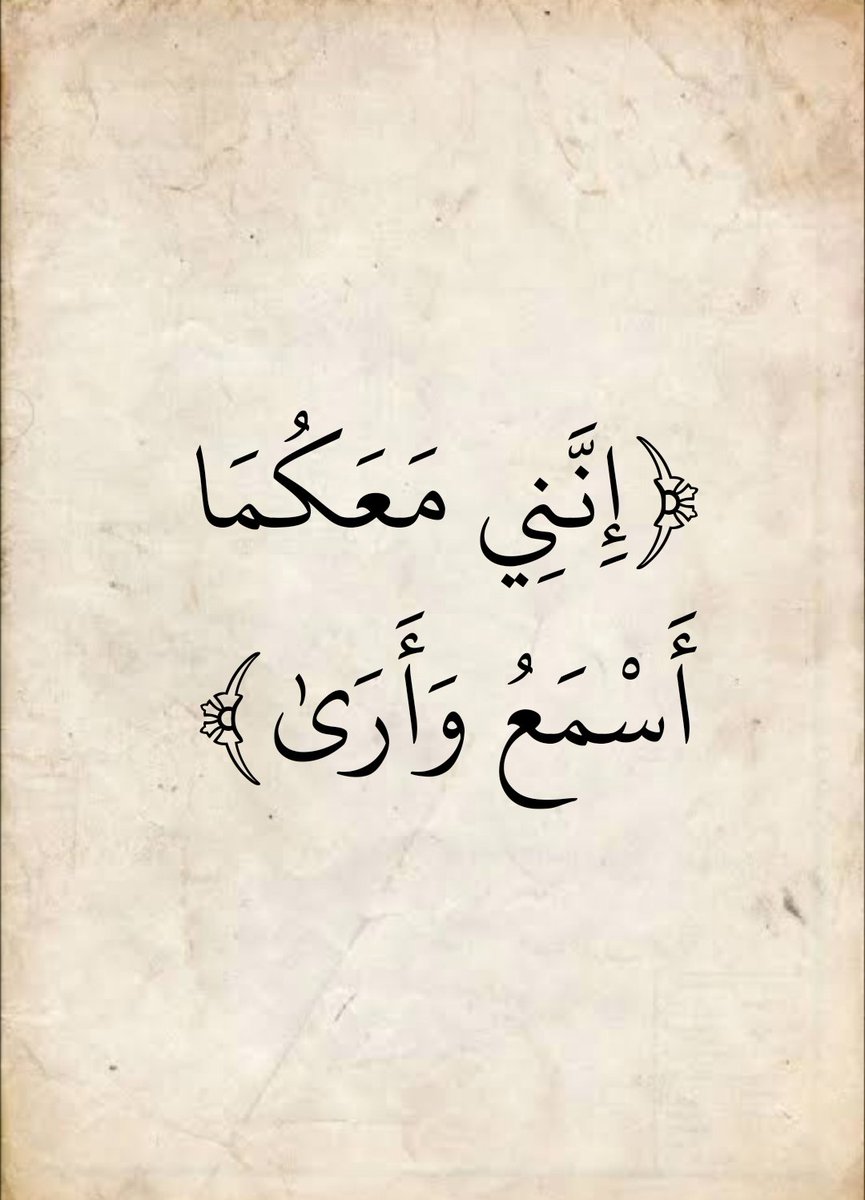 ﴿إِنَّنِي مَعَكُمَا
أَسْمَعُ وَأَرَىٰ ﴾